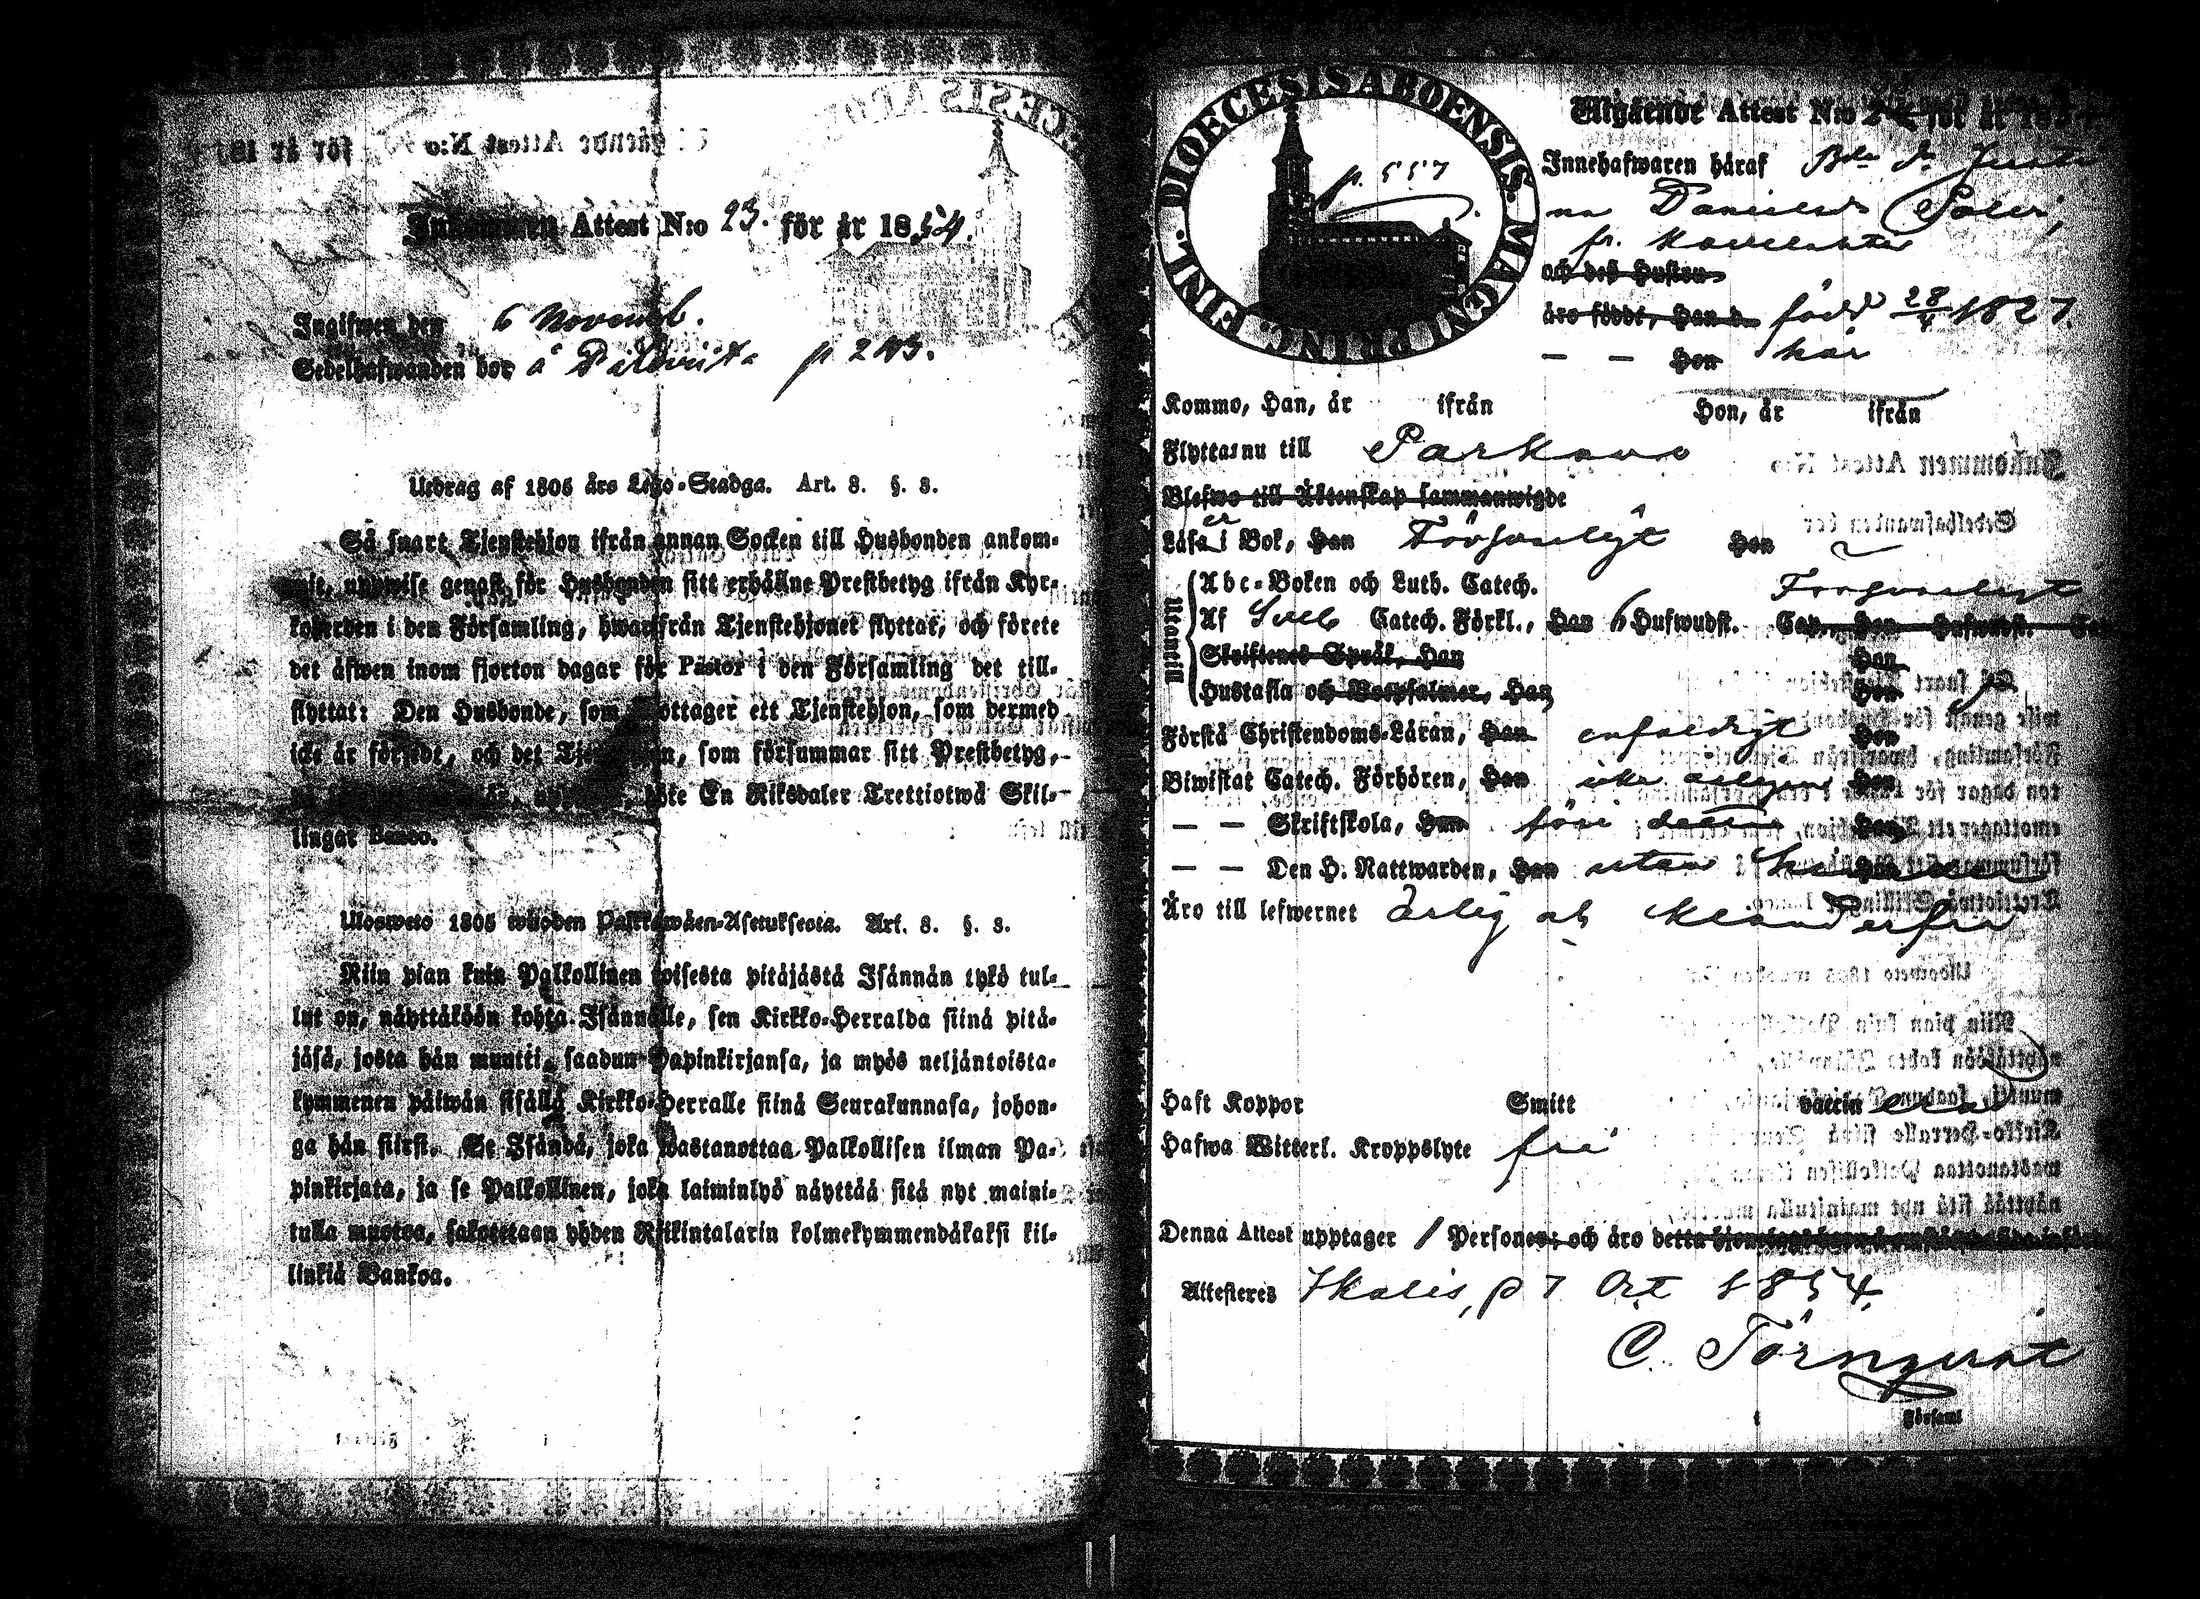 Inkommen Attest N:o 23. för år 1854.
Ingifwen den 6 Novemb.
Sedelhafwanden bor å p 243.
Utdrag af 1805 års Lego-Stadga. Art. 8. §. 3.
Så snart Tjenstehjon ifrån annan Socken till Husbonden ankom-
mit, uppwise genast för Husbonden sitt erhållne Prestbetyg ifrån Kyr-
koherden i den Församling, hwarifrån Tjenstehjonet flyttat, och förete
det äfwen inom fjorton dagar för Pastor i den Församling det till-
flyttat: Den Husbonde, som emottager ett Tjenstehjon, som dermed
icke är försedt, och det Tjenstehjon, som försummar sitt Prestbetyg,
böte En Riksdaler Trettiotwå Skil-
lingar Banco.
Ulosweto 1805 wuoden Palkkawäen-Asetuksesta. Art. 8. §. 3.
Niin pian kuin Palkollinen toisesta pitäjästä Isännän tykö tul-
lut on, näyttäköön kohta Isännälle, sen Kirkko-Herralda siinä pitä-
jäsä, josta hän muutti, saadun Papinkirjansa, ja myös neljäntoista-
kymmenen päiwän sisällä Kirkko-Herralle siinä Seurakunnasa, johon-
ga hän siirsi. Se Isändä, joka wastanottaa Palkollisen ilman Pa-
pinkirjata, ja se Palkollinen, joka laiminlyö näyttää sitä nyt maini-
tulla muotoa, sakotetaan yhden Riikintalarin kolmekymmendäkaksi kil-
linkiä Bankoa.
DIOECESIS ABOENSIS. MAGNI PRINC. FINL.
p. 557
Utgående Attest N:o för år 18
Innehafwaren häraf
na Danielsdr
fr.
och deß Hustru
äro födde, Han d. född 28/4 1827.
— — Hon här
Kommo, Han, år ifrån Hon, år ifrån
Flyttar nu till Parkano
Blefwo till Äktenskap sammanwigde
Läser i Bok, Han Försvarligt Hon
Utantill
Abc-Boken och Luth. Catech. Försvarligt
Af Sveb Catech. Förkl., Han 6 Hufwudst. Cap., Hon Hufwudst.
Skriftenes Språk, Han Hon
Hustafla och Botpsalmer, Han Hon
Förstå Christendoms-Läran, Han enfaldigt Hon
Biwistat Catech. Förhören, Han icke Hon
— — Skriftskola, Han före detta Hon
— — Den H. Nattwarden, Han utan Hon
Äro till lefwernet ärlig och klanderfri
Haft Koppor Smitt vaccin
Hafwa Witterl. Kroppslyte fri
Denna Attest upptager 1 Persone; och äro
Attesteres Ikalis, p 7 Oct 1854.
C. Törnqvist
Församl